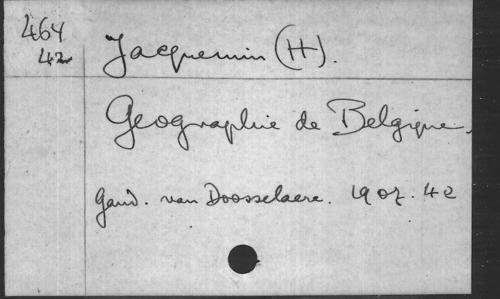 464
42
Jacquemin (H).
Geographie de Belgique.
Gand. van Doosselaere. 1907. 42